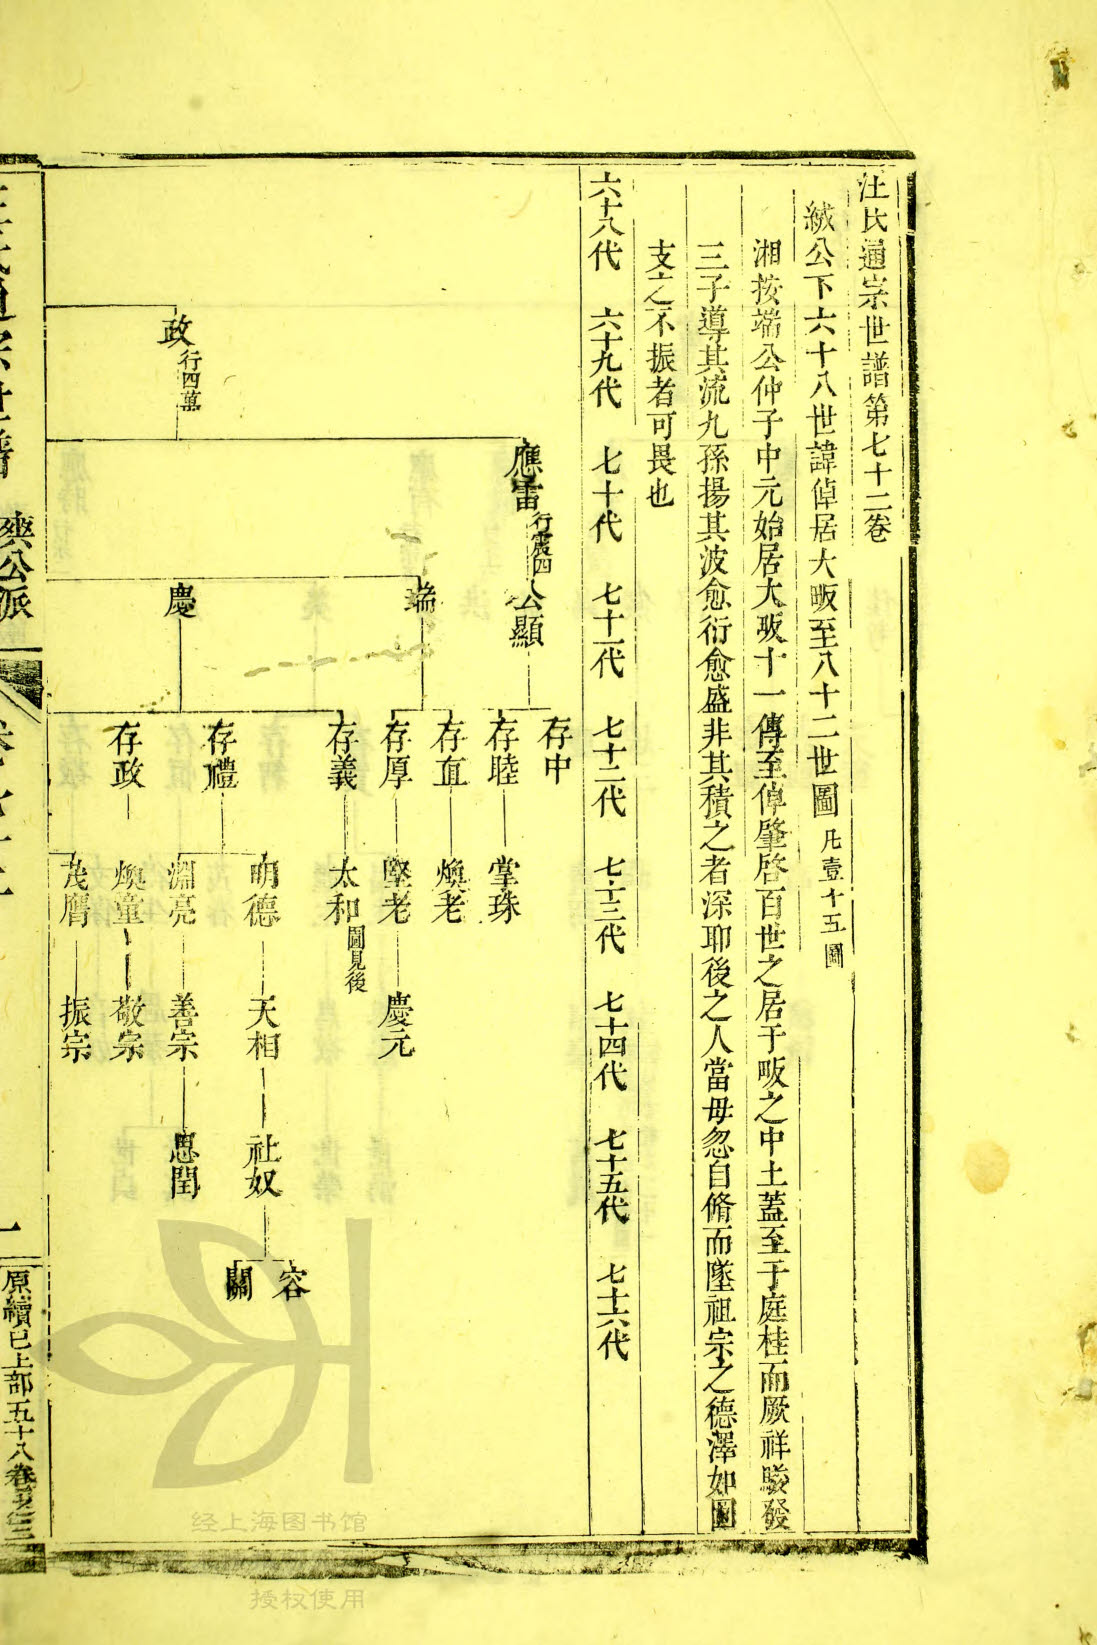 汪氏通宗世譜第七十二卷
緎公下六十八世諱倬居大畈至八十二世圖 凡壹十五圖
湘按端公仲子中元始居大畈十一傳至倬肇啓百世之居于畈之中土蓋至于庭桂而厥祥駿發
三子導其流九孫揚其波愈衍愈盛非其積之者深耶後之人當毋忽自脩而墜祖宗之德澤如圖
支之不振者可畏也
六十八代 六十九代 七十代 七十一代 七十二代 七十三代 七十四代 七十五代 七十六代
存中
應雷 行震四 公顯 存睦 掌珠
存直 煥老
端 存厚 堅老 慶元
存義 太和 圖見後
容
明德 天相 社奴
關
存禮
政 行四萬 慶 淵亮 善宗 思閏
存政 煥童 敬宗
茂膺 振宗
汪氏通宗世譜 爽公派 卷七十二 一 原續已上部五十八卷
经上海图书馆
授权使用